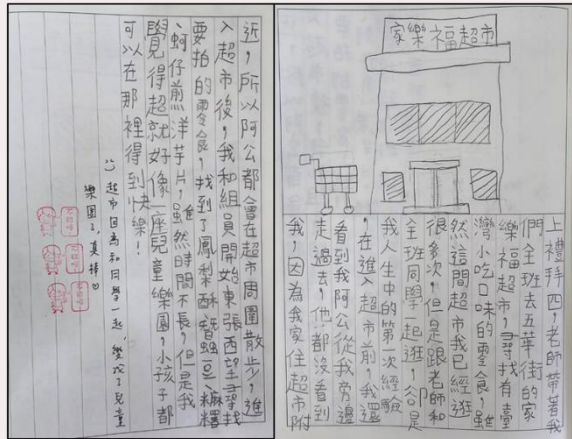 家樂福超市
上禮拜四，老師帶著我
們全班去五華街的家
樂福超市，尋找有臺
灣小吃口味的零食，雖
然這間超市我已經逛
很多次，但是跟老師和
全班同學一起逛，卻是
我人生中的第一次經驗
，在進入超市前，我還
看到我阿公從我旁邊
走過去，他都沒看到
我，因為我家住超市附
近，所以阿公都會在超市周圍散步，進
入超市後，我和組員開始東張西望尋找
要拍的零食，找到了鳳梨酥、麻糬
、蚵仔煎洋芋片，雖然時間不長，但是我
覺得超就好像座兒童樂園，小孩子都
可以在那裡得到快樂！
:) 超市因為和同學一起，變成了兒童
樂園了，真棒